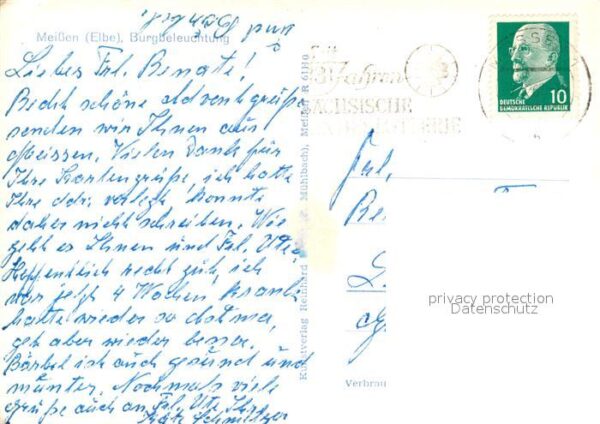 und Bärbel.
Meißen (Elbe), Burgbeleuchtung
Liebes Frl. Renate!
Recht schöne Adventsgrüße
senden wir Ihnen aus
Meissen. Vielen Dank für
Ihre Kartengrüße, ich hatte
Ihre Adr. verlegt konnte
daher nicht schreiben. Wie
geht es Ihnen und Frl. Ute?
Hoffentlich recht gut, ich
war jetzt 4 Wochen krank
hatte wieder so Astma,
geh aber wieder besser.
Bärbel ist auch gesund und
munter. Nochmals viele
Grüße auch an Frl. Ute Ihre
Käte Schmelzer
Kunstverlag Reinhard Mühlbach), Meißen R 61/10
Seit
Jahren
SÄCHSISCHE
LOTTERIE
MEISSEN
DEUTSCHE
DEMOKRATISCHE REPUBLIK
10
Frl.
Re
privacy protection
Datenschutz
Verbrau